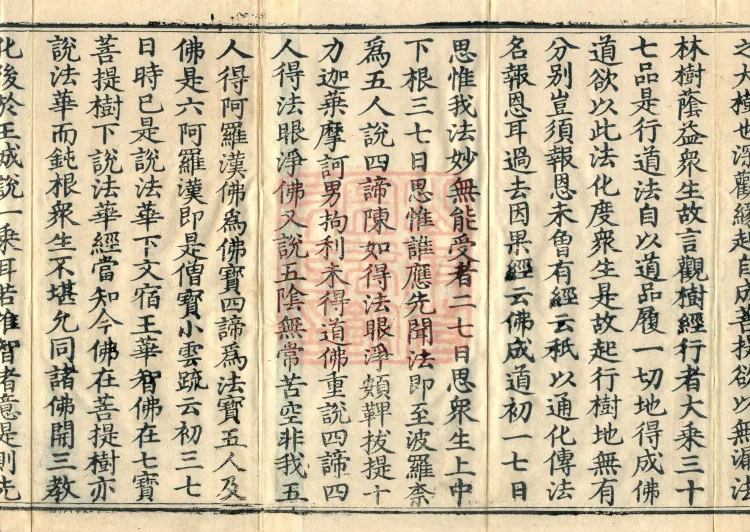 之大樹也深觀緣起自成菩提欲以無漏法
林樹蔭益衆生故言觀樹經行者大乘三十
七品是行道法自以道品履一切地得成佛
道欲以此法化度衆生是故起行樹地無有
分別豈須報恩未曾有經云秖以通化傳法
名報恩耳過去因果經云佛成道初一七日
思惟我法妙無能受者二七日思衆生上中
下根三七日思惟誰應先聞法即至波羅柰
爲五人說四諦陳如得法眼淨頞鞞拔提十
力迦葉摩訶男拘利未得道佛重說四諦四
人得法眼淨佛又說五陰無常苦空非我五
人得阿羅漢佛爲佛寶四諦爲法寶五人及
佛是六阿羅漢即是僧寶小雲疏云初三七
日時已是說法華下文宿王華智佛在七寶
菩提樹下說法華經當知今佛在菩提樹亦
說法華而鈍根衆生不堪允同諸佛開三教
化後於王城說一乘耳若推智者意是則先